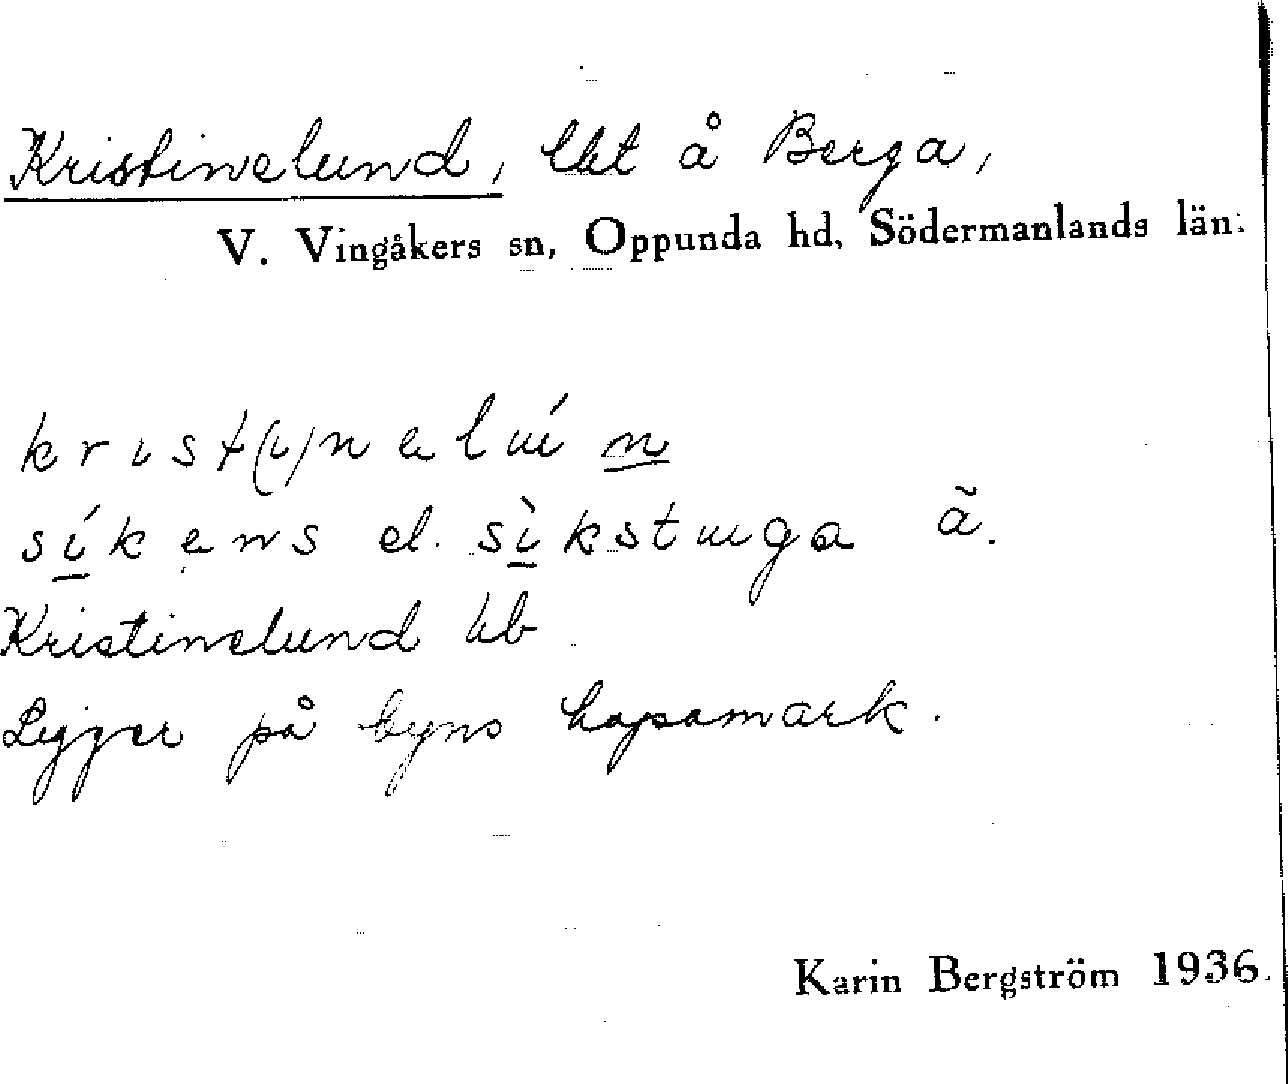 Kristinelund, lht å Berga,
V. Vingåkers sn, Oppunda hd, Södermanlands län.
krist(i)nelún
síkens el. sìkstuga ä.
Kristinelund hb.
Ligger på byns hagamark.
Karin Bergström 1936.